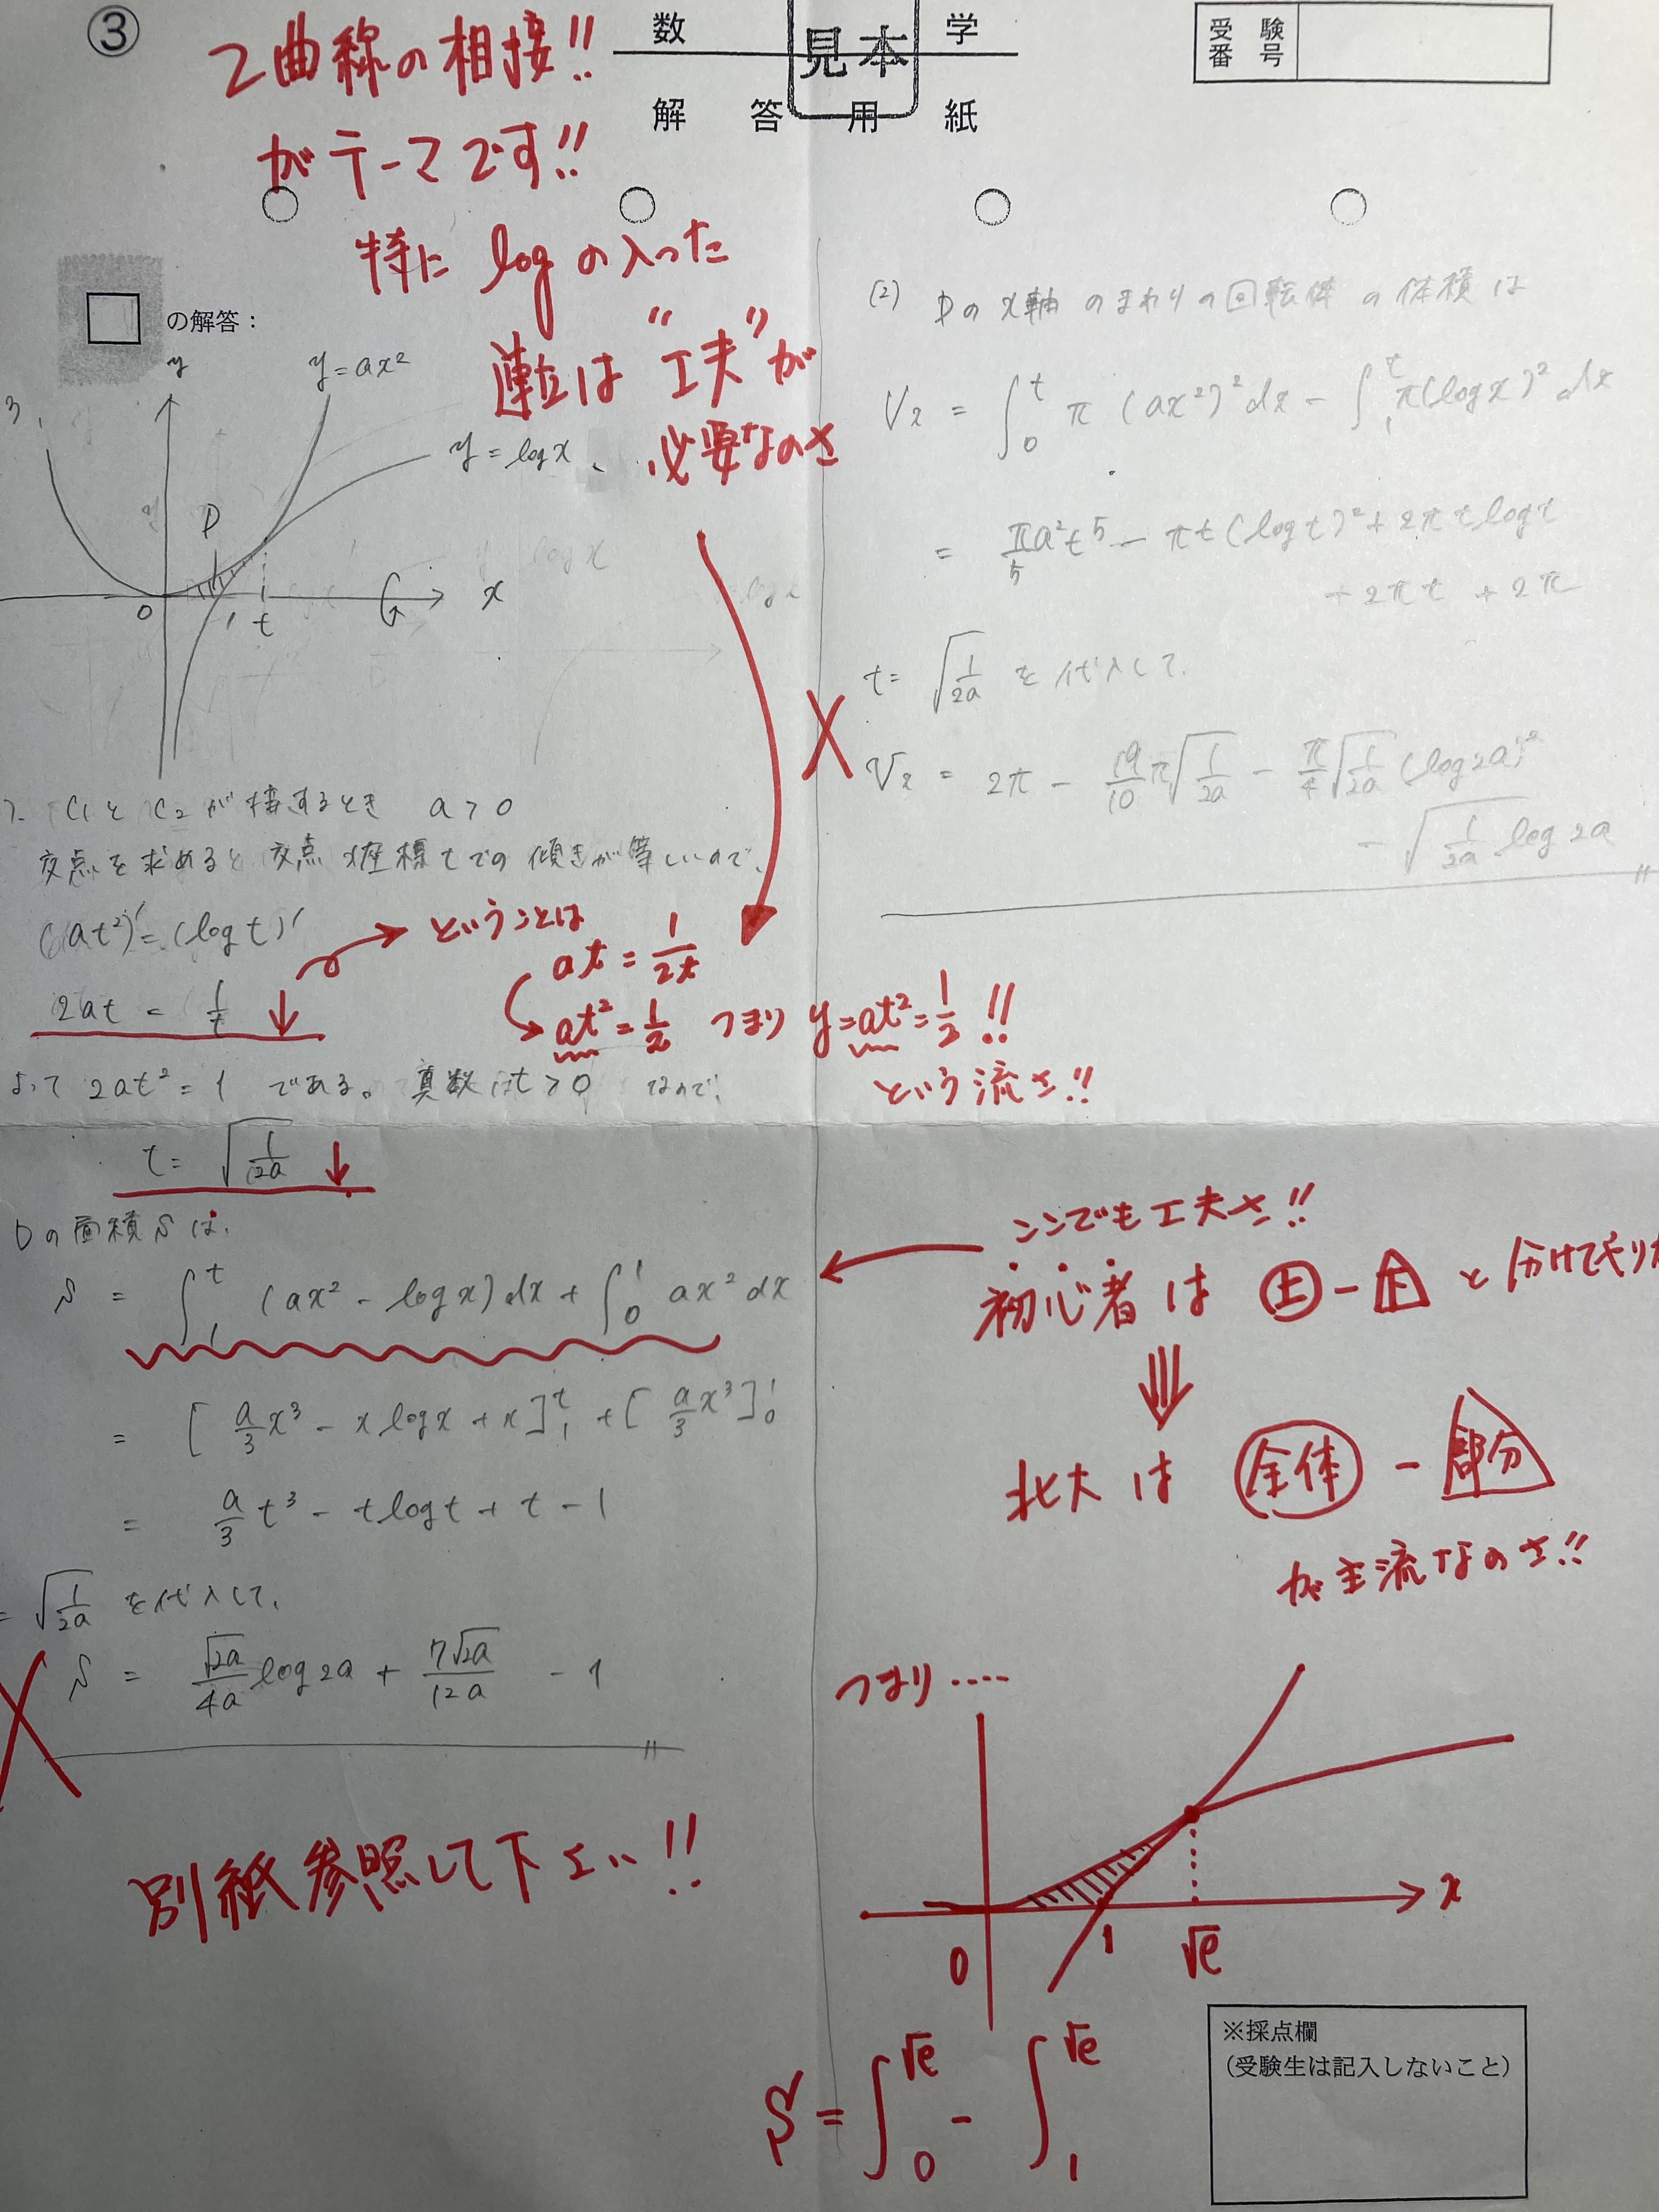 ③
数 学
見本
解 答 用 紙
受 験
番 号
2曲線の相接!!
がテーマです!!
特に log の入った
連立は "工夫" が
必要なのさ
の解答：
3.
y
y = ax²
y = log x
D
0
1
t
x
C₁と C₂が接するとき a > 0
交点を求めると 交点 x座標 t での 傾きが等しいので、
(at²)' = (log t)'
2at = 1/t ↓
ということは
at = 1/2t
at² = 1/2 つまり y = at² = 1/2 !!
という流さ!!
よって 2at² = 1 である。 真数は t > 0 なので、
t = √(1/2a) ↓
Dの面積Sは、
S = ∫₁ᵗ (ax² - log x) dx + ∫₀¹ ax² dx
= [a/3 x³ - x log x + x]₁ᵗ + [a/3 x³]₀¹
= a/3 t³ - t log t + t - 1
= √(1/2a) を代入して、
S = √2a/4a log 2a + 7√2a/12a - 1
別紙参照して下さい!!
(2) D の x軸 のまわりの回転体 の体積は
Vx = ∫₀ᵗ π (ax²)² dx - ∫₁ᵗ π(log x)² dx
= π/5 a²t⁵ - πt (log t)² + 2πt log t
+ 2πt + 2π
t = √(1/2a) を代入して、
Vx = 2π - 19/10 π√(1/2a) - π/4 √(1/2a) (log 2a)²
- √(1/2a) log 2a
ここでも工夫さ!!
初心者は 上 - 下 と分けてやりが
北大は 全体 - 部分
が主流なのさ!!
つまり ‥‥
x
0
1
√e
S = ∫₀^√e - ∫₁^√e
※採点欄
（受験生は記入しないこと）